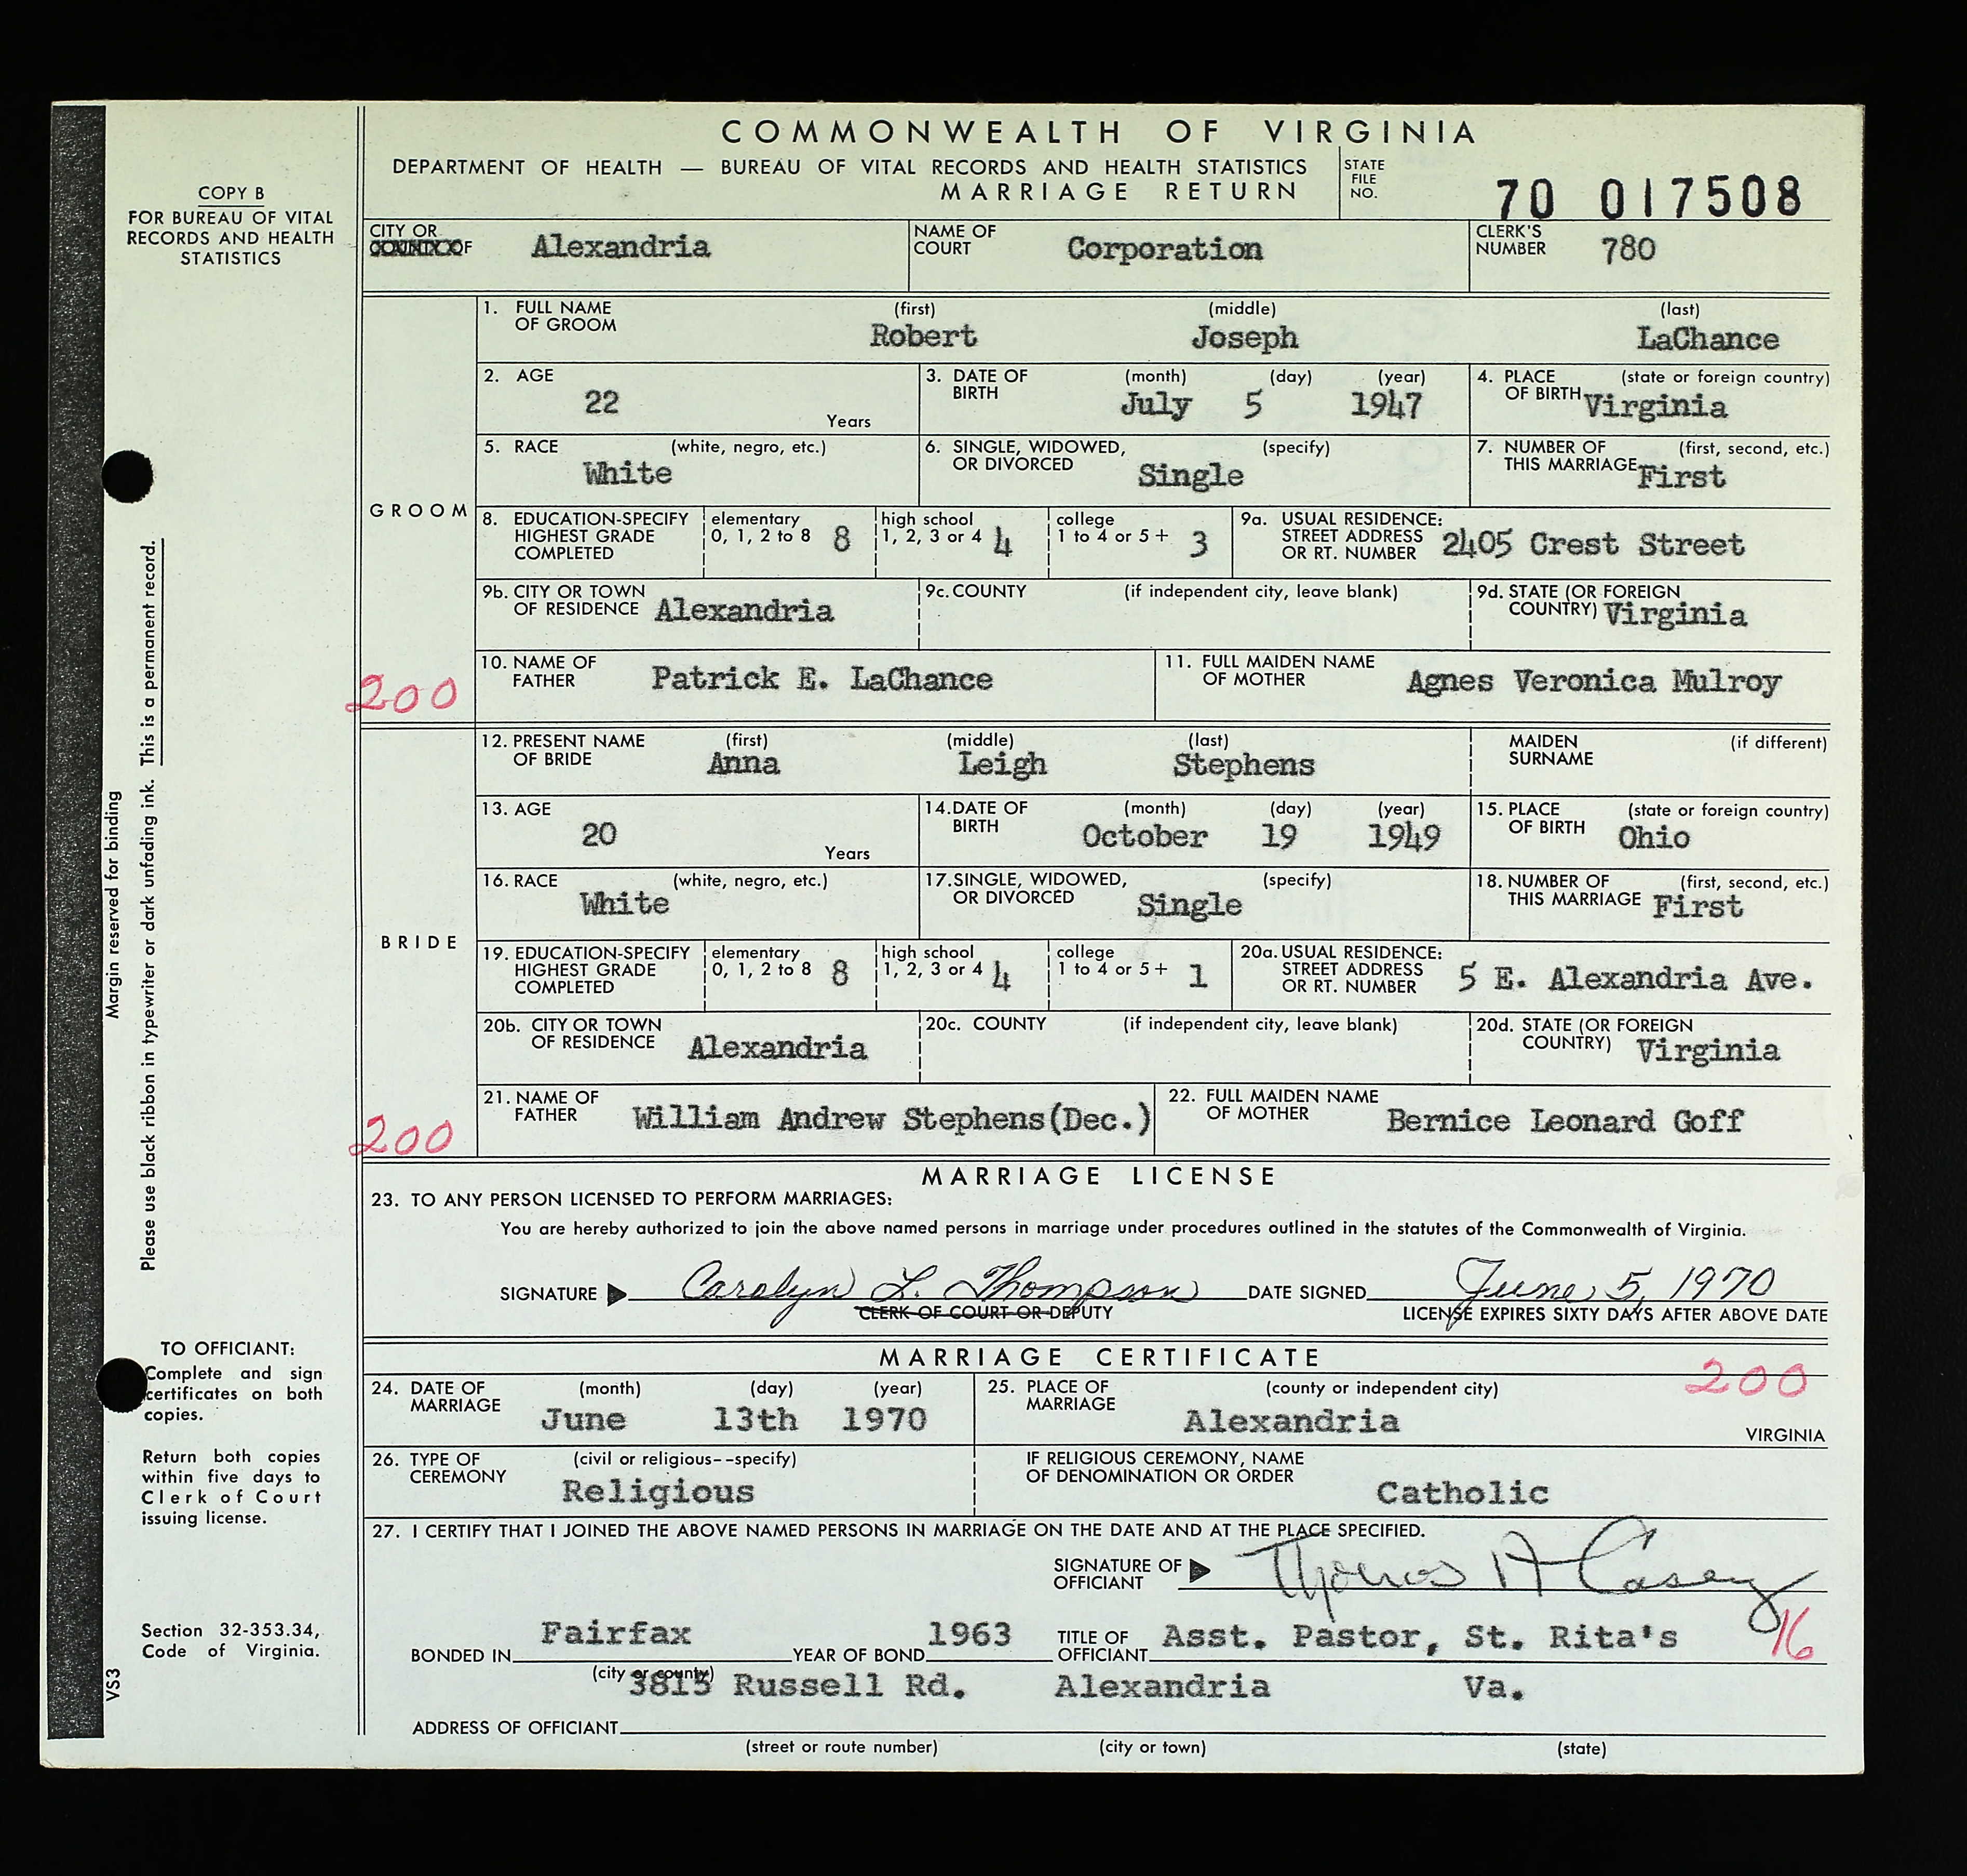 COMMONWEALTH OF VIRGINIA
DEPARTMENT OF HEALTH — BUREAU OF VITAL RECORDS AND HEALTH STATISTICS
MARRIAGE RETURN
STATE FILE NO. 70 017508
COPY B
FOR BUREAU OF VITAL
RECORDS AND HEALTH
STATISTICS
CITY OR COUNTY OF Alexandria NAME OF COURT Corporation CLERK'S NUMBER 780
GROOM
1. FULL NAME OF GROOM (first) Robert (middle) Joseph (last) LaChance
2. AGE 22 Years 3. DATE OF BIRTH (month) July (day) 5 (year) 1947 4. PLACE OF BIRTH (state or foreign country) Virginia
5. RACE (white, negro, etc.) White 6. SINGLE, WIDOWED, OR DIVORCED (specify) Single 7. NUMBER OF THIS MARRIAGE (first, second, etc.) First
8. EDUCATION-SPECIFY HIGHEST GRADE COMPLETED elementary 0, 1, 2 to 8 8 high school 1, 2, 3 or 4 4 college 1 to 4 or 5+ 3 9a. USUAL RESIDENCE: STREET ADDRESS OR RT. NUMBER 2405 Crest Street
9b. CITY OR TOWN OF RESIDENCE Alexandria 9c. COUNTY (if independent city, leave blank) 9d. STATE (OR FOREIGN COUNTRY) Virginia
10. NAME OF FATHER Patrick E. LaChance 11. FULL MAIDEN NAME OF MOTHER Agnes Veronica Mulroy
200
BRIDE
12. PRESENT NAME OF BRIDE (first) Anna (middle) Leigh (last) Stephens MAIDEN SURNAME (if different)
13. AGE 20 Years 14. DATE OF BIRTH (month) October (day) 19 (year) 1949 15. PLACE OF BIRTH (state or foreign country) Ohio
16. RACE (white, negro, etc.) White 17. SINGLE, WIDOWED, OR DIVORCED (specify) Single 18. NUMBER OF THIS MARRIAGE (first, second, etc.) First
19. EDUCATION-SPECIFY HIGHEST GRADE COMPLETED elementary 0, 1, 2 to 8 8 high school 1, 2, 3 or 4 4 college 1 to 4 or 5+ 1 20a. USUAL RESIDENCE: STREET ADDRESS OR RT. NUMBER 5 E. Alexandria Ave.
20b. CITY OR TOWN OF RESIDENCE Alexandria 20c. COUNTY (if independent city, leave blank) 20d. STATE (OR FOREIGN COUNTRY) Virginia
21. NAME OF FATHER William Andrew Stephens(Dec.) 22. FULL MAIDEN NAME OF MOTHER Bernice Leonard Goff
200
MARRIAGE LICENSE
23. TO ANY PERSON LICENSED TO PERFORM MARRIAGES:
You are hereby authorized to join the above named persons in marriage under procedures outlined in the statutes of the Commonwealth of Virginia.
SIGNATURE Carolyn L. Thompson DATE SIGNED June 5, 1970
CLERK OF COURT OR DEPUTY LICENSE EXPIRES SIXTY DAYS AFTER ABOVE DATE
MARRIAGE CERTIFICATE
200
24. DATE OF MARRIAGE (month) June (day) 13th (year) 1970 25. PLACE OF MARRIAGE (county or independent city) Alexandria VIRGINIA
26. TYPE OF CEREMONY (civil or religious--specify) Religious IF RELIGIOUS CEREMONY, NAME OF DENOMINATION OR ORDER Catholic
27. I CERTIFY THAT I JOINED THE ABOVE NAMED PERSONS IN MARRIAGE ON THE DATE AND AT THE PLACE SPECIFIED.
SIGNATURE OF OFFICIANT Thomas A Casey
BONDED IN Fairfax (city or county) YEAR OF BOND 1963 TITLE OF OFFICIANT Asst. Pastor, St. Rita's
16
ADDRESS OF OFFICIANT 3815 Russell Rd. Alexandria Va.
(street or route number) (city or town) (state)
Margin reserved for binding
Please use black ribbon in typewriter or dark unfading ink. This is a permanent record.
TO OFFICIANT:
Complete and sign
certificates on both
copies.
Return both copies
within five days to
Clerk of Court
issuing license.
Section 32-353.34,
Code of Virginia.
VS3